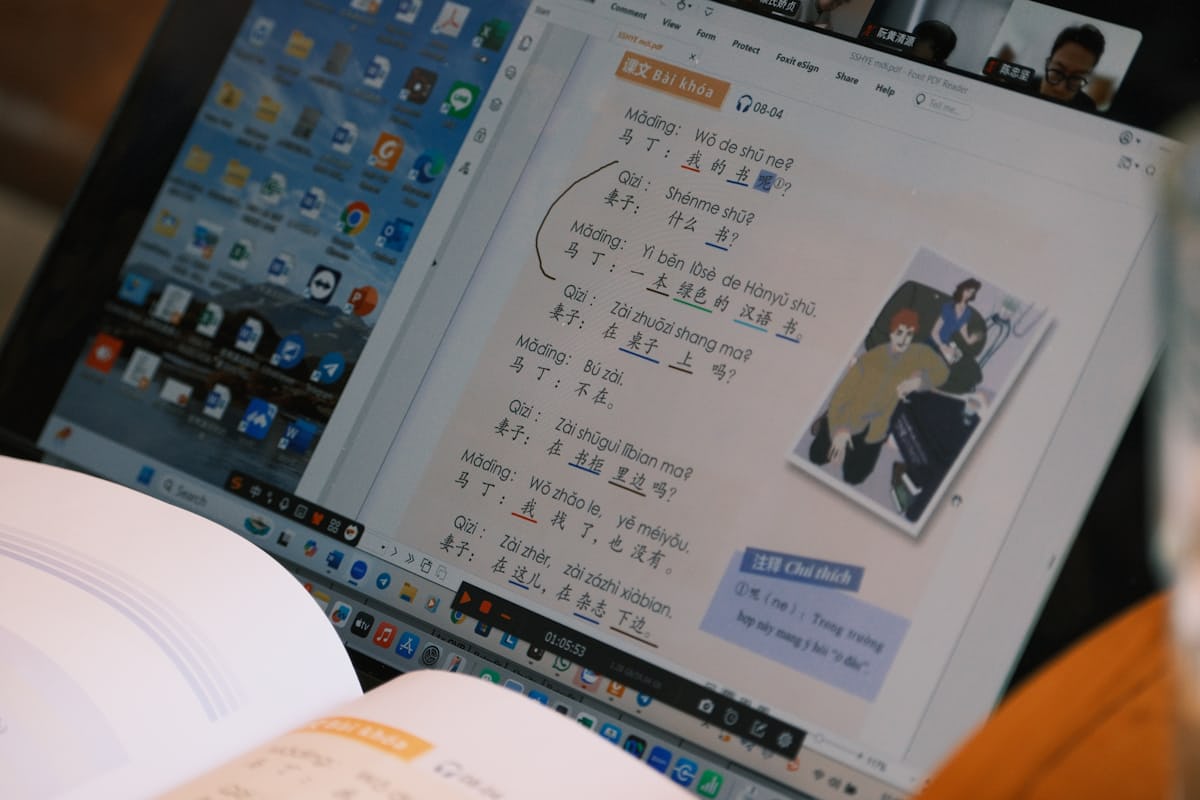 Start
Comment View Form Protect Foxit eSign Share Help
SSHYE mới.pdf - Foxit PDF Reader
Tell me...
阮黄清源
陈忠坚
SSHYE mới.pdf
课文 Bài khóa
08-04
Mǎdīng: Wǒ de shū ne?
马丁：我的书呢①？
Qīzi: Shénme shū?
妻子：什么书？
Mǎdīng: Yì běn lǜsè de Hànyǔ shū.
马丁：一本绿色的汉语书。
Qīzi: Zài zhuōzi shang ma?
妻子：在桌子上吗？
Mǎdīng: Bú zài.
马丁：不在。
Qīzi: Zài shūguì lǐbian ma?
妻子：在书柜里边吗？
Mǎdīng: Wǒ zhǎo le, yě méiyǒu.
马丁：我找了，也没有。
Qīzi: Zài zhèr, zài zázhì xiàbian.
妻子：在这儿，在杂志下边。
注释 Chú thích
①呢 (ne): Trong trường
hợp này mang ý hỏi "ở đâu".
Search
中
01:05:53
117%
Bài khóa
08-04